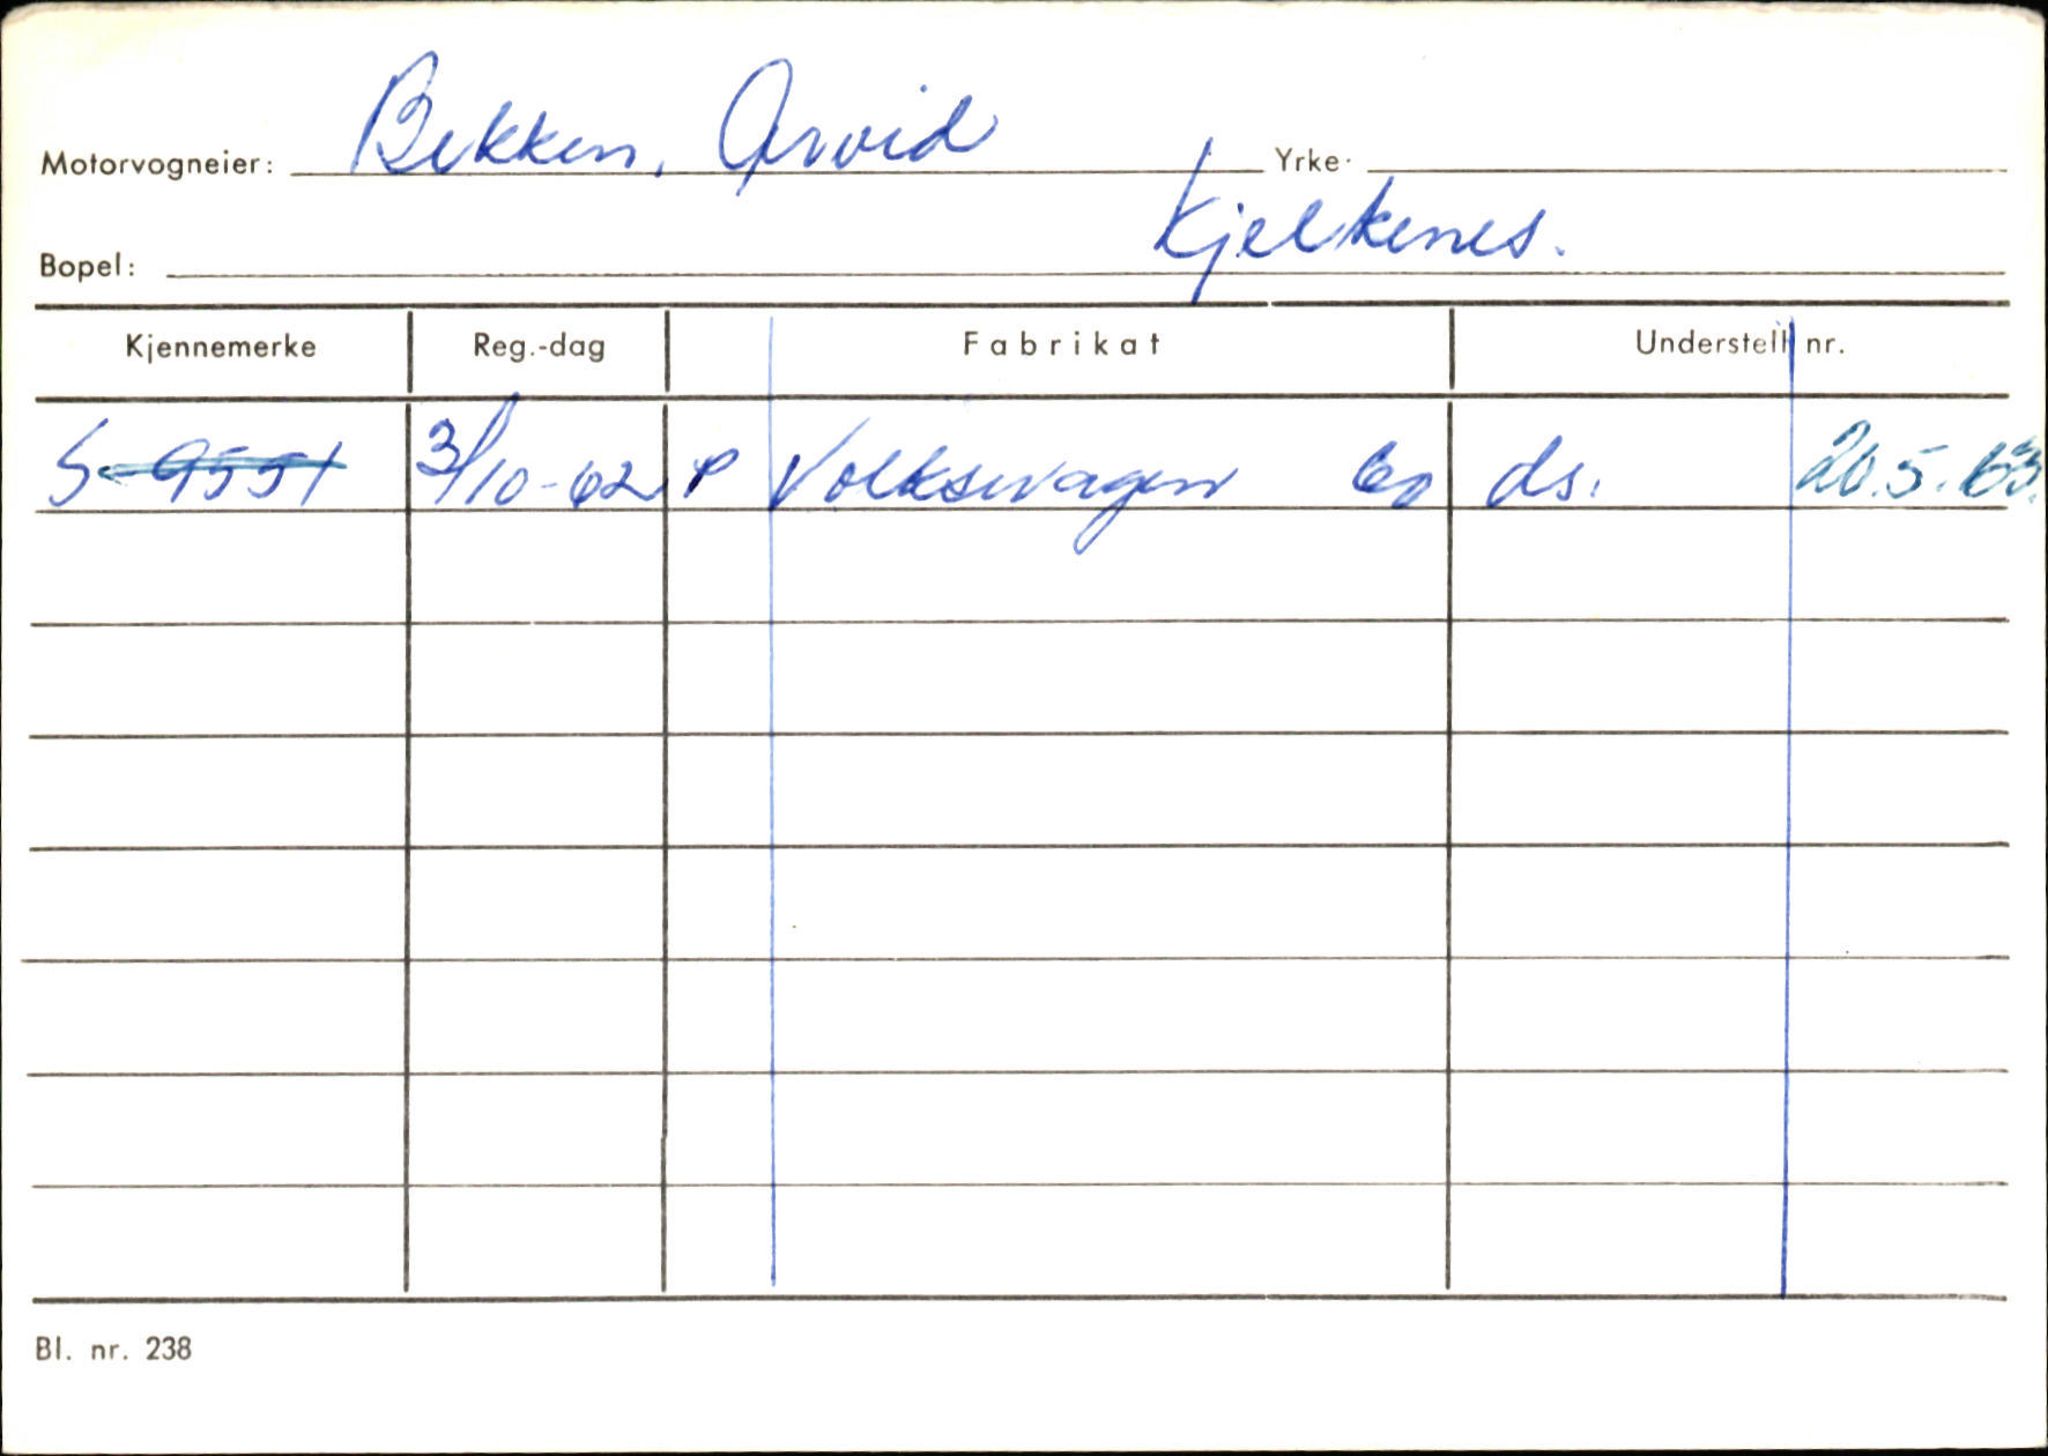 Motorvogneier: Bekken, Arvid Yrke:
Bopel: Kjelkenes.
Kjennemerke Reg.-dag Fabrikat Understell nr.
S-9551 3/10-62 P Volkswagen 60 ds. 20.5.63.
Bl. nr. 238